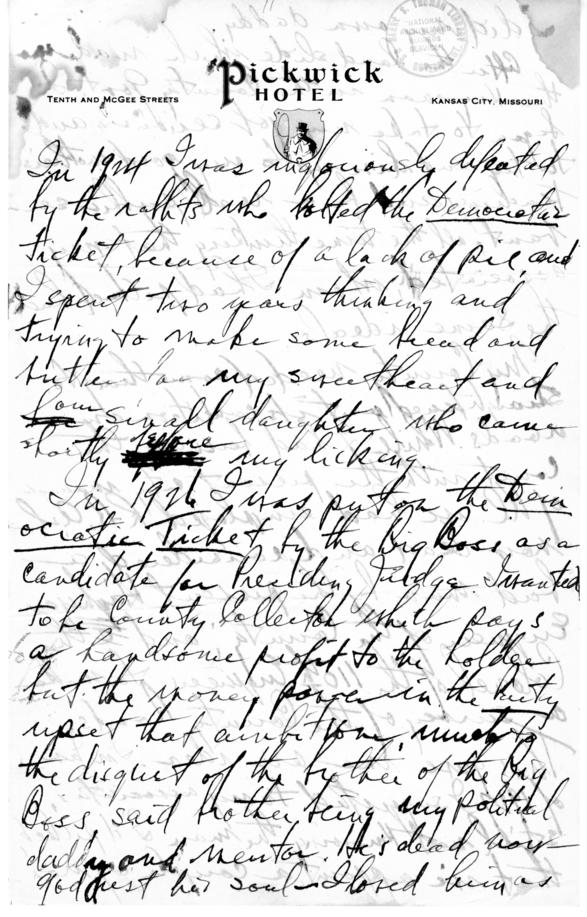 Pickwick
HOTEL
TENTH AND MCGEE STREETS
KANSAS CITY, MISSOURI
NATIONAL
In 1924 I was ingloriously defeated
by the rabbits who bolted the Democratic
Ticket, because of a lack of pie, and
I spent two years thinking and
trying to make some bread and
butter for my sweetheart and
small daughter who came
shortly before my licking.
In 1926 I was put on the Dem
ocratic Ticket by the Big Boss as a
candidate for Presiding Judge. I wanted
to be County Collector which pays
a handsome profit to the holder
but the money power in the
upset that ambition, much to
the disquiet of the brother of the Big
Boss, said brother being my political
daddy and mentor. He's dead now
God rest his soul I loved him as